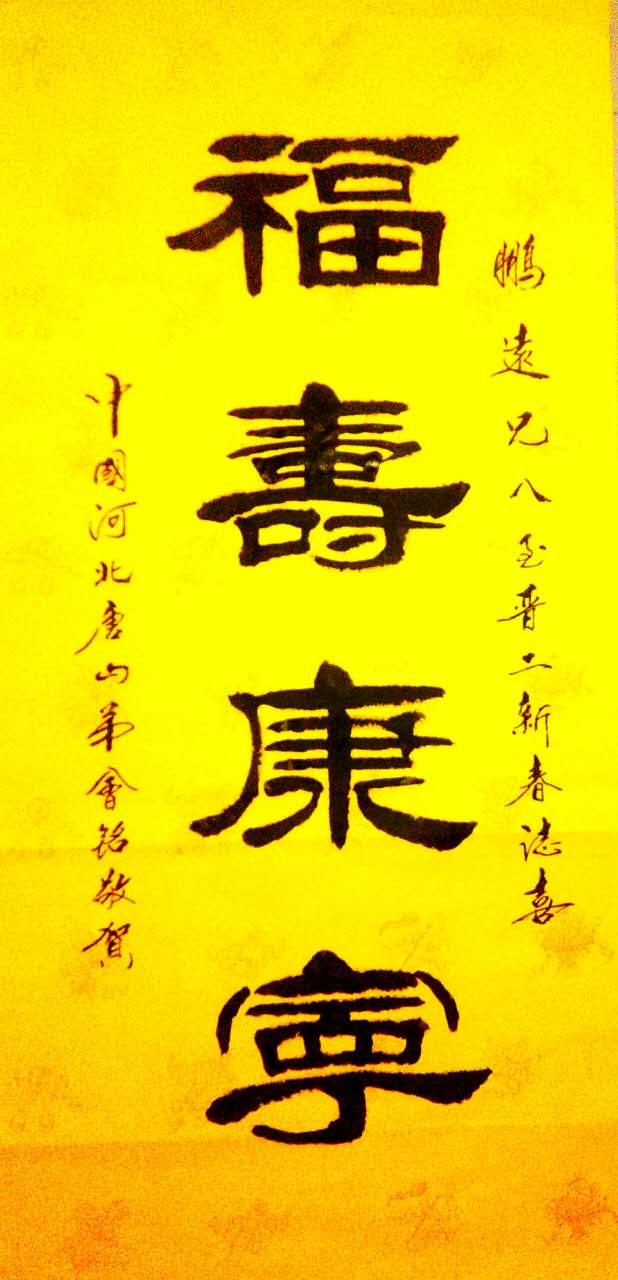 鵬遠兄八至晋二新春誌喜
福壽康寧
中國河北唐山弟會銘敬賀